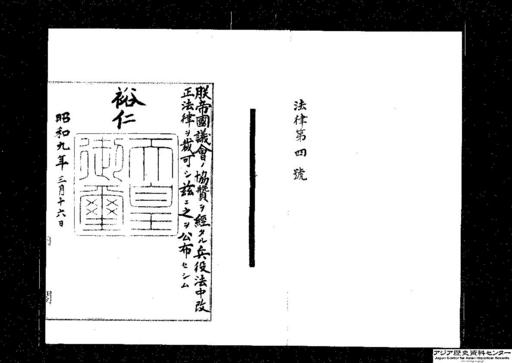 法律第四號
朕帝國議會ノ協賛ヲ經タル兵役法中改
正法律ヲ裁可シ茲ニ之ヲ公布セシム
裕仁
天皇
御璽
昭和九年三月十六日
アジア歴史資料センター
Japan Center for Asian Historical Records